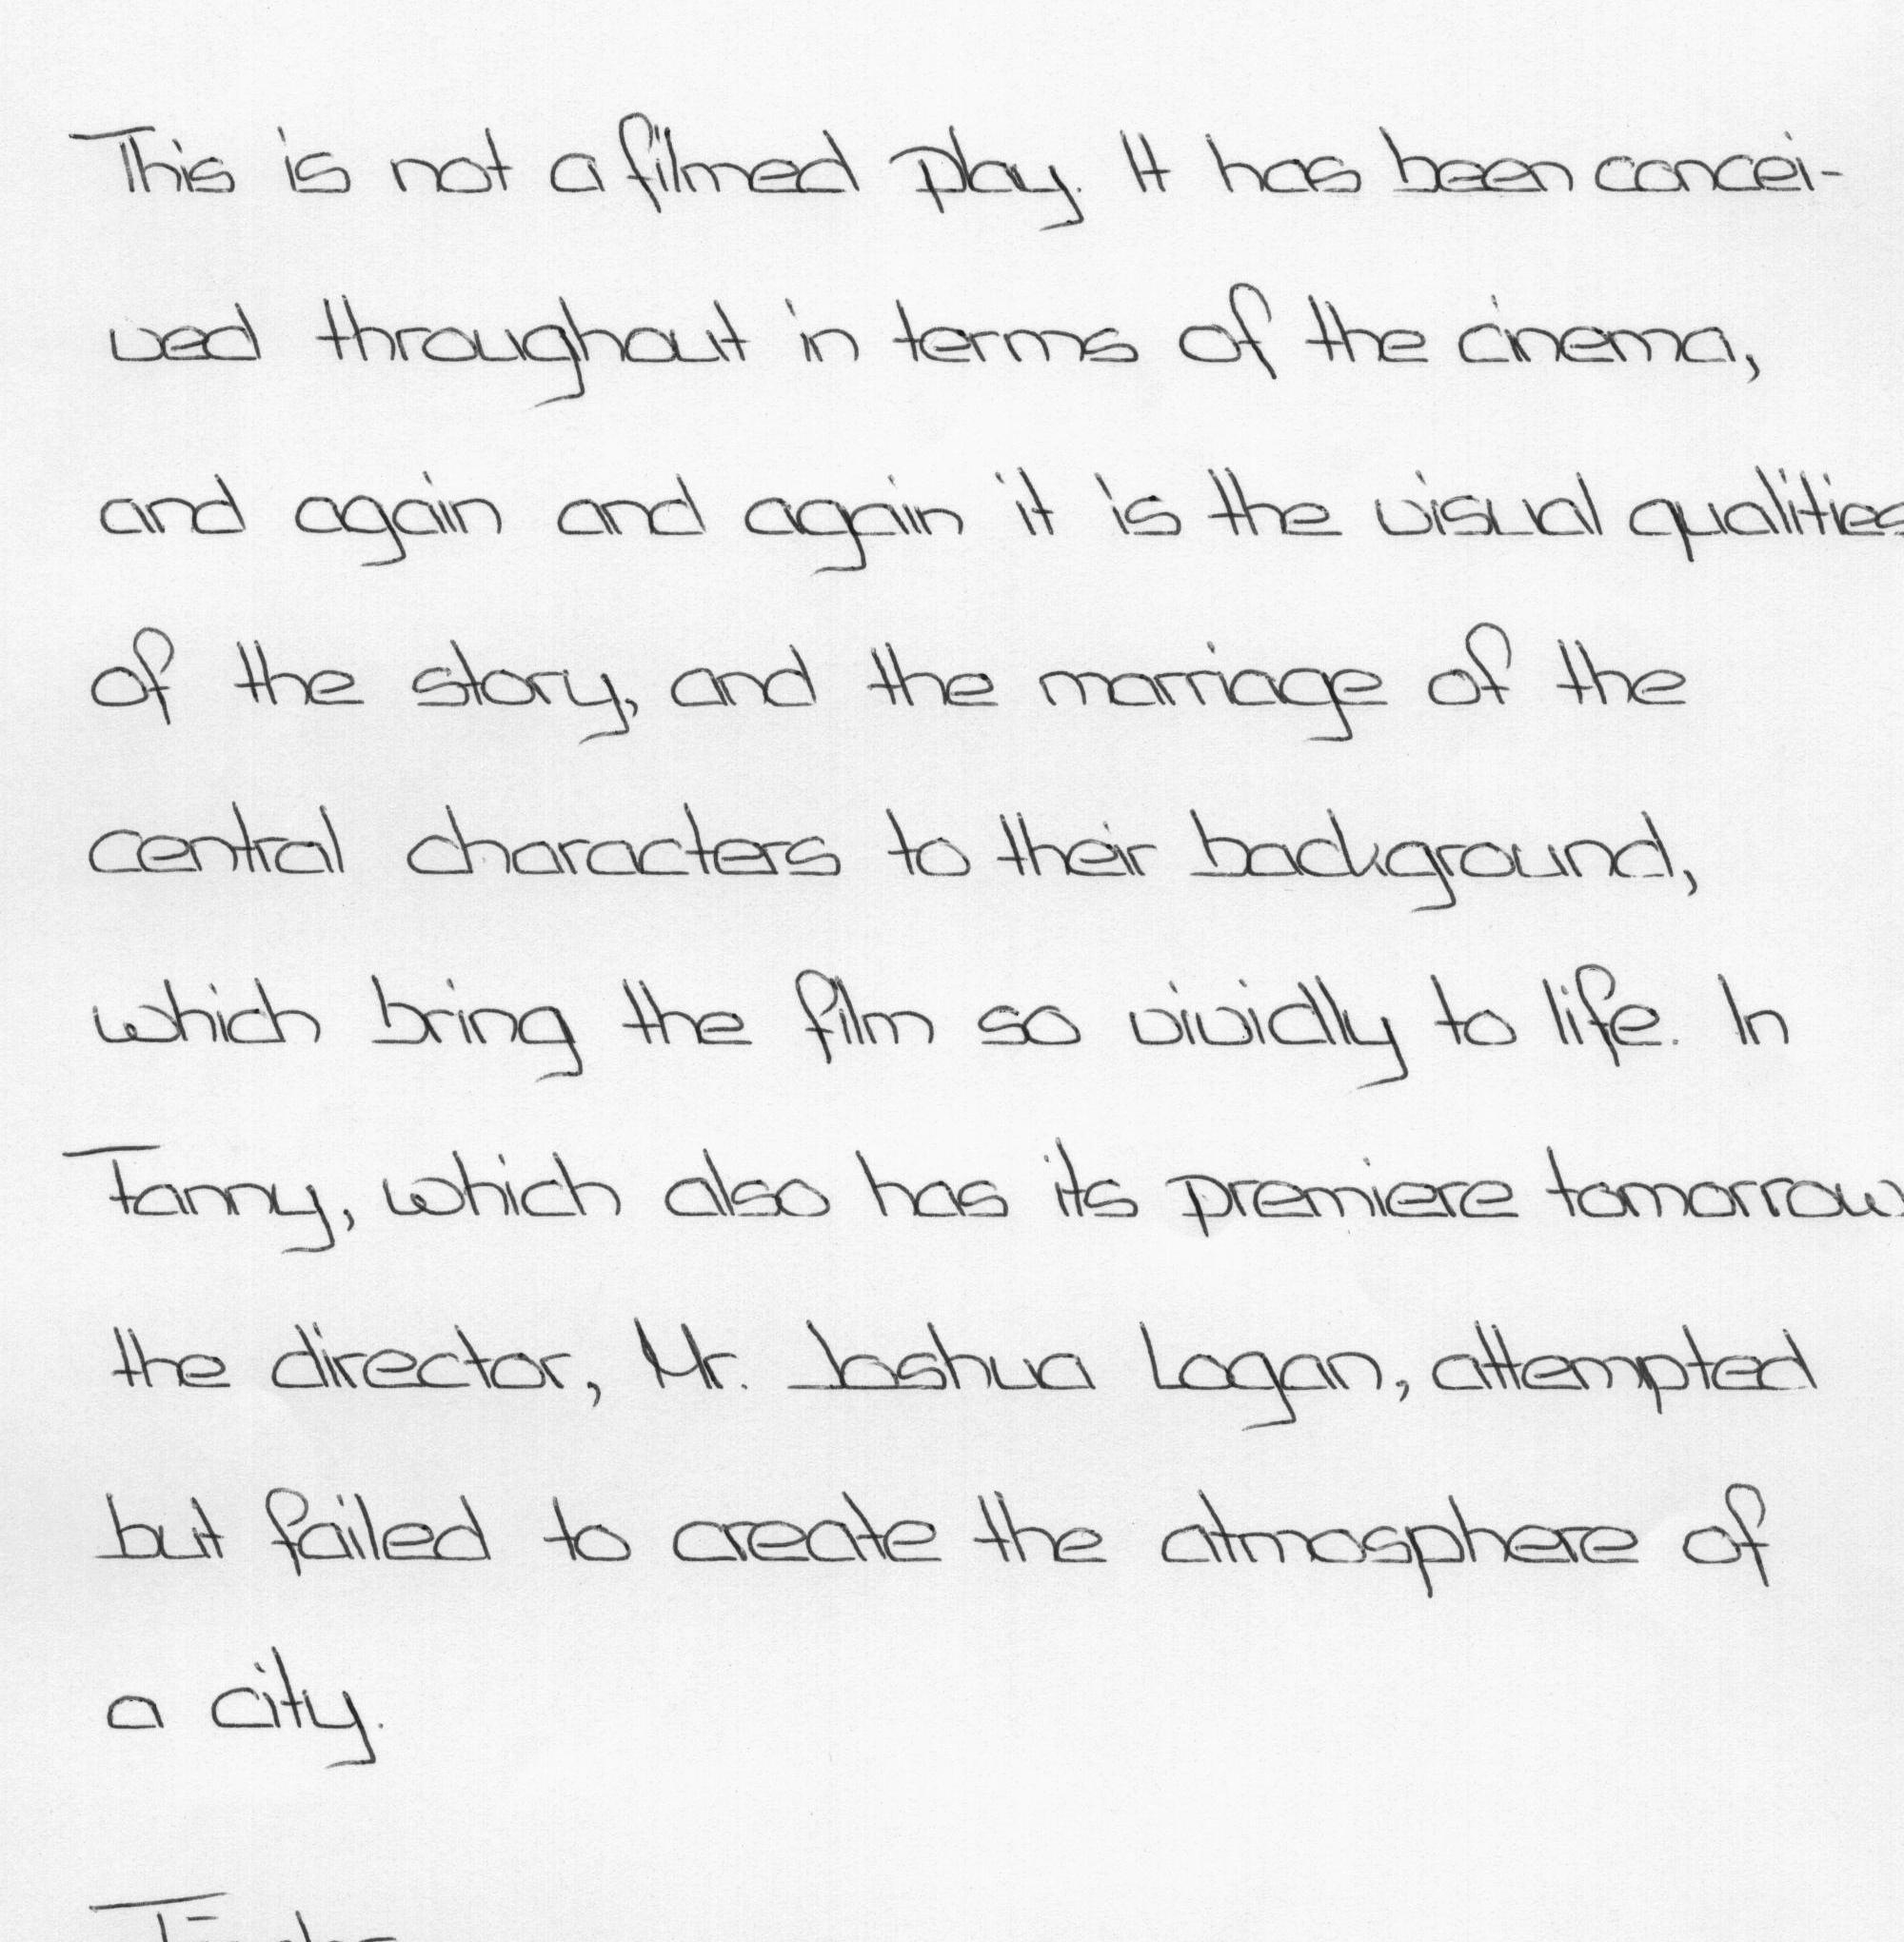 This is not a filmed play. It has been concei-
ved throughout in terms of the cinema,
and again and again it is the visual qualities
of the story, and the marriage of the
central characters to their background,
which bring the film so vividly to life. In
Fanny, which also has its premiere tomorrow
the director, Mr. Joshua Logan, attempted
but failed to create the atmosphere of
a city.